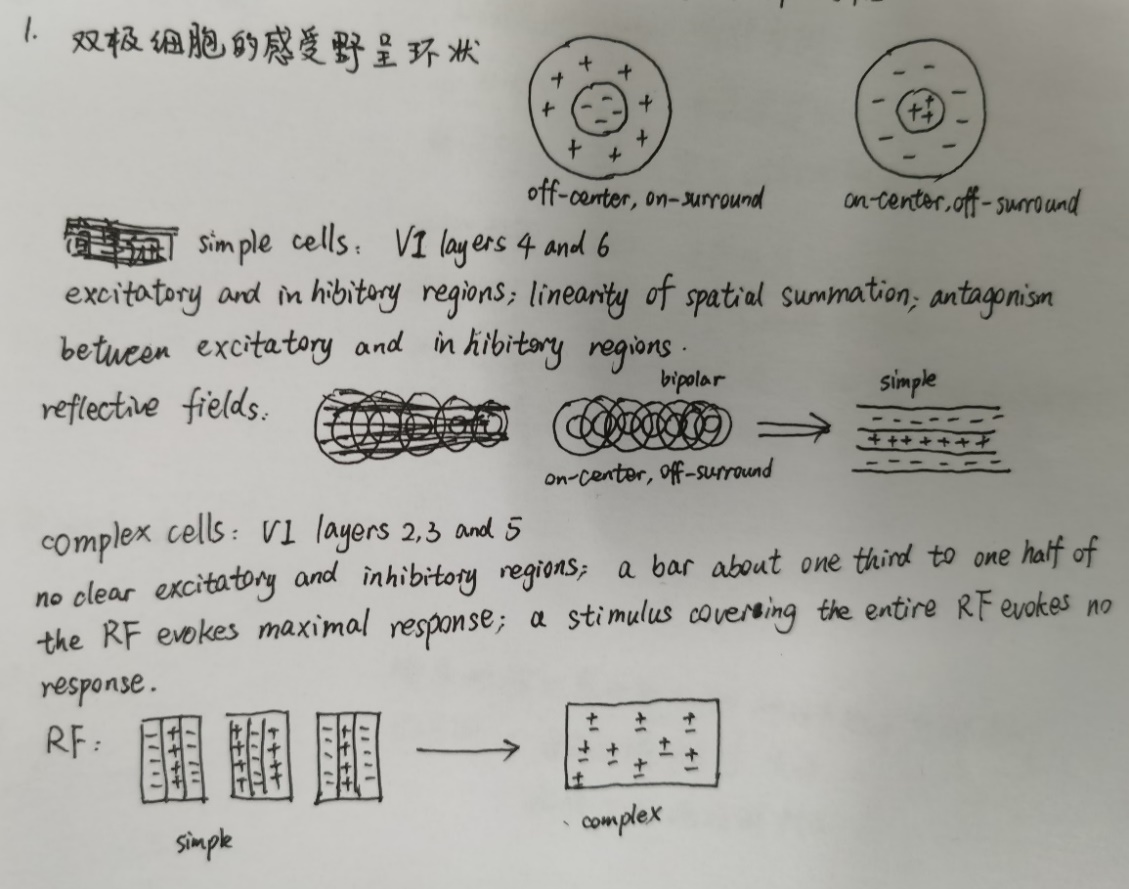 1. 双极细胞的感受野呈环状
off-center, on-surround
on-center, off-surround
simple cells: V1 layers 4 and 6
excitatory and inhibitory regions; linearity of spatial summation; antagonism
between excitatory and inhibitory regions.
reflective fields:
bipolar
simple
on-center, off-surround
complex cells: V1 layers 2,3 and 5
no clear excitatory and inhibitory regions; a bar about one third to one half of
the RF evokes maximal response; a stimulus covering the entire RF evokes no
response.
RF:
simple
complex